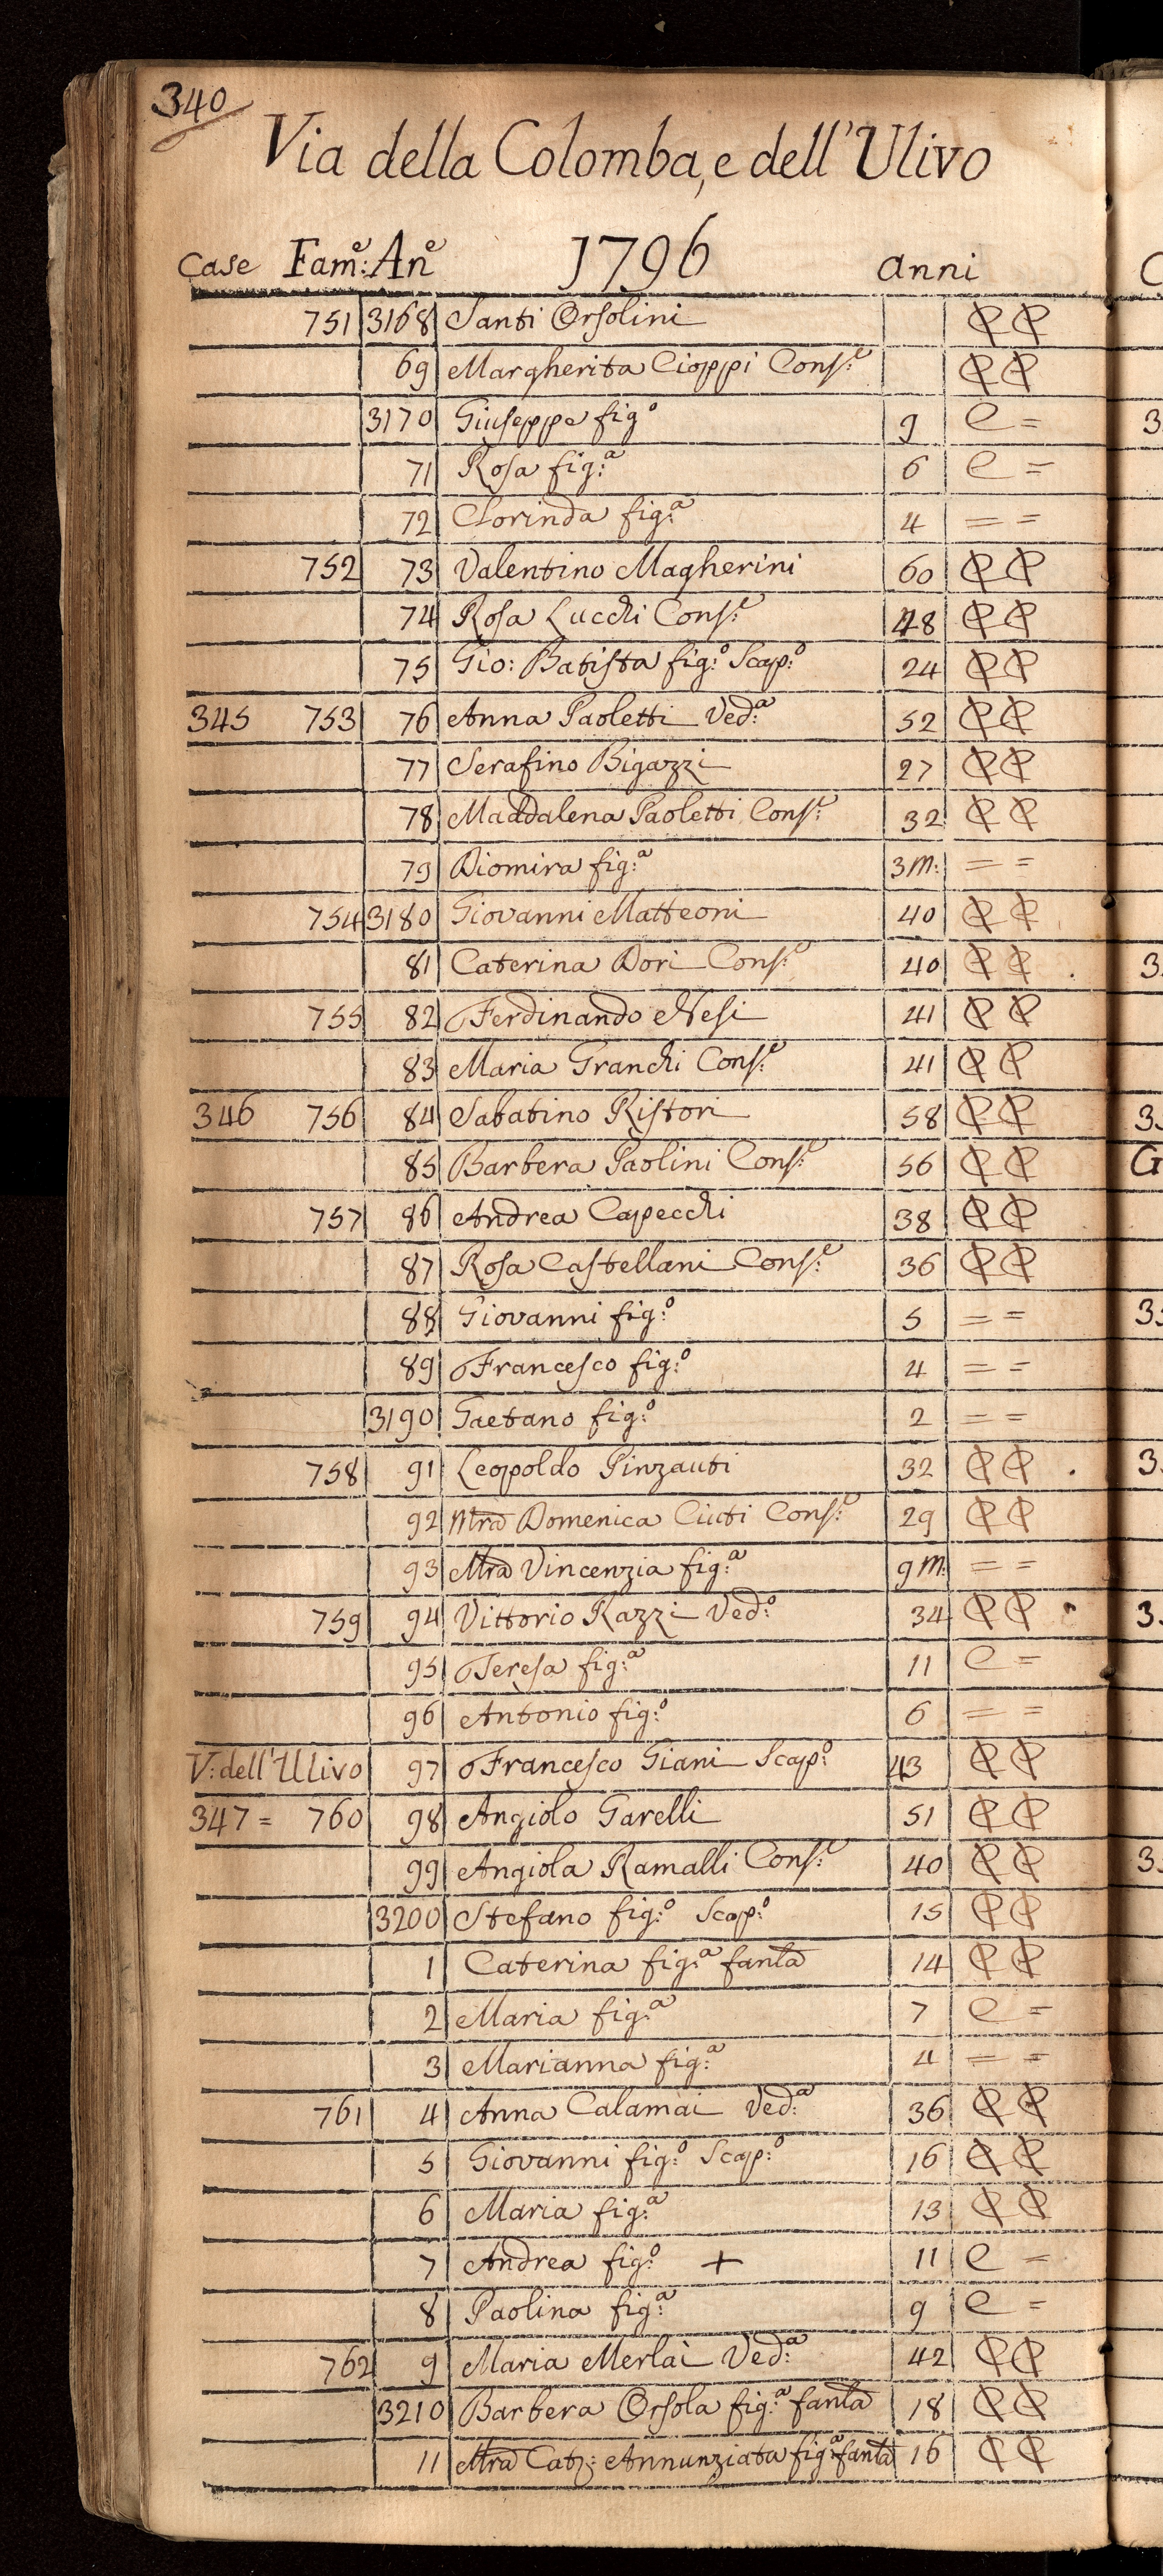 340
Via della Colomba, e dell'Ulivo
Case Fam:e An:e 1796 anni
751 3168 Santi Orsolini
69 Margherita Cioppi Cons:e
3170 Giuseppe fig:o 9 C =
71 Rosa fig:a 6 C =
72 Clorinda fig:a 4 = =
752 73 Valentino Magherini 60
74 Rosa Lucchi Cons:e 48
75 Gio: Batista fig:o Scap:o 24
345 753 76 Anna Paoletti Ved:a 52
77 Serafino Bigazzi 27
78 Maddalena Paoletti Cons:e 32
79 Diomira fig:a 3m: = =
754 3180 Giovanni Matteoni 40
81 Caterina Dori Cons:e 40
755 82 Ferdinando Nesi 41
83 Maria Granchi Cons:e 41
346 756 84 Sabatino Ristori 58
85 Barbera Paolini Cons:e 56
757 86 Andrea Capecchi 38
87 Rosa Castellani Cons:e 36
88 Giovanni fig:o 5 = =
89 Francesco fig:o 4 = =
3190 Gaetano fig:o 2 = =
758 91 Leopoldo Pinzauti 32
92 Mra Domenica Ciuti Cons:e 29
93 Mra Vincenzia fig:a 9m: = =
759 94 Vittorio Razzi Ved:o 34
95 Teresa fig:a 11 C =
96 Antonio fig:o 6 = =
V: dell'Ulivo 97 Francesco Giani Scap:o 43
347 = 760 98 Angiolo Garelli 51
99 Angiola Ramalli Cons:e 40
3200 Stefano fig:o Scap:o 15
1 Caterina fig:a fanla 14
2 Maria fig:a 7 C =
3 Marianna fig:a 4 = =
761 4 Anna Calamai Ved:a 36
5 Giovanni fig:o Scap:o 16
6 Maria fig:a 13
7 Andrea fig:o + 11 C =
8 Paolina fig:a 9 C =
762 9 Maria Merlai Ved:a 42
3210 Barbera Orsola fig:a fanla 18
11 Mra Catz: Annunziata fig:a fanla 16